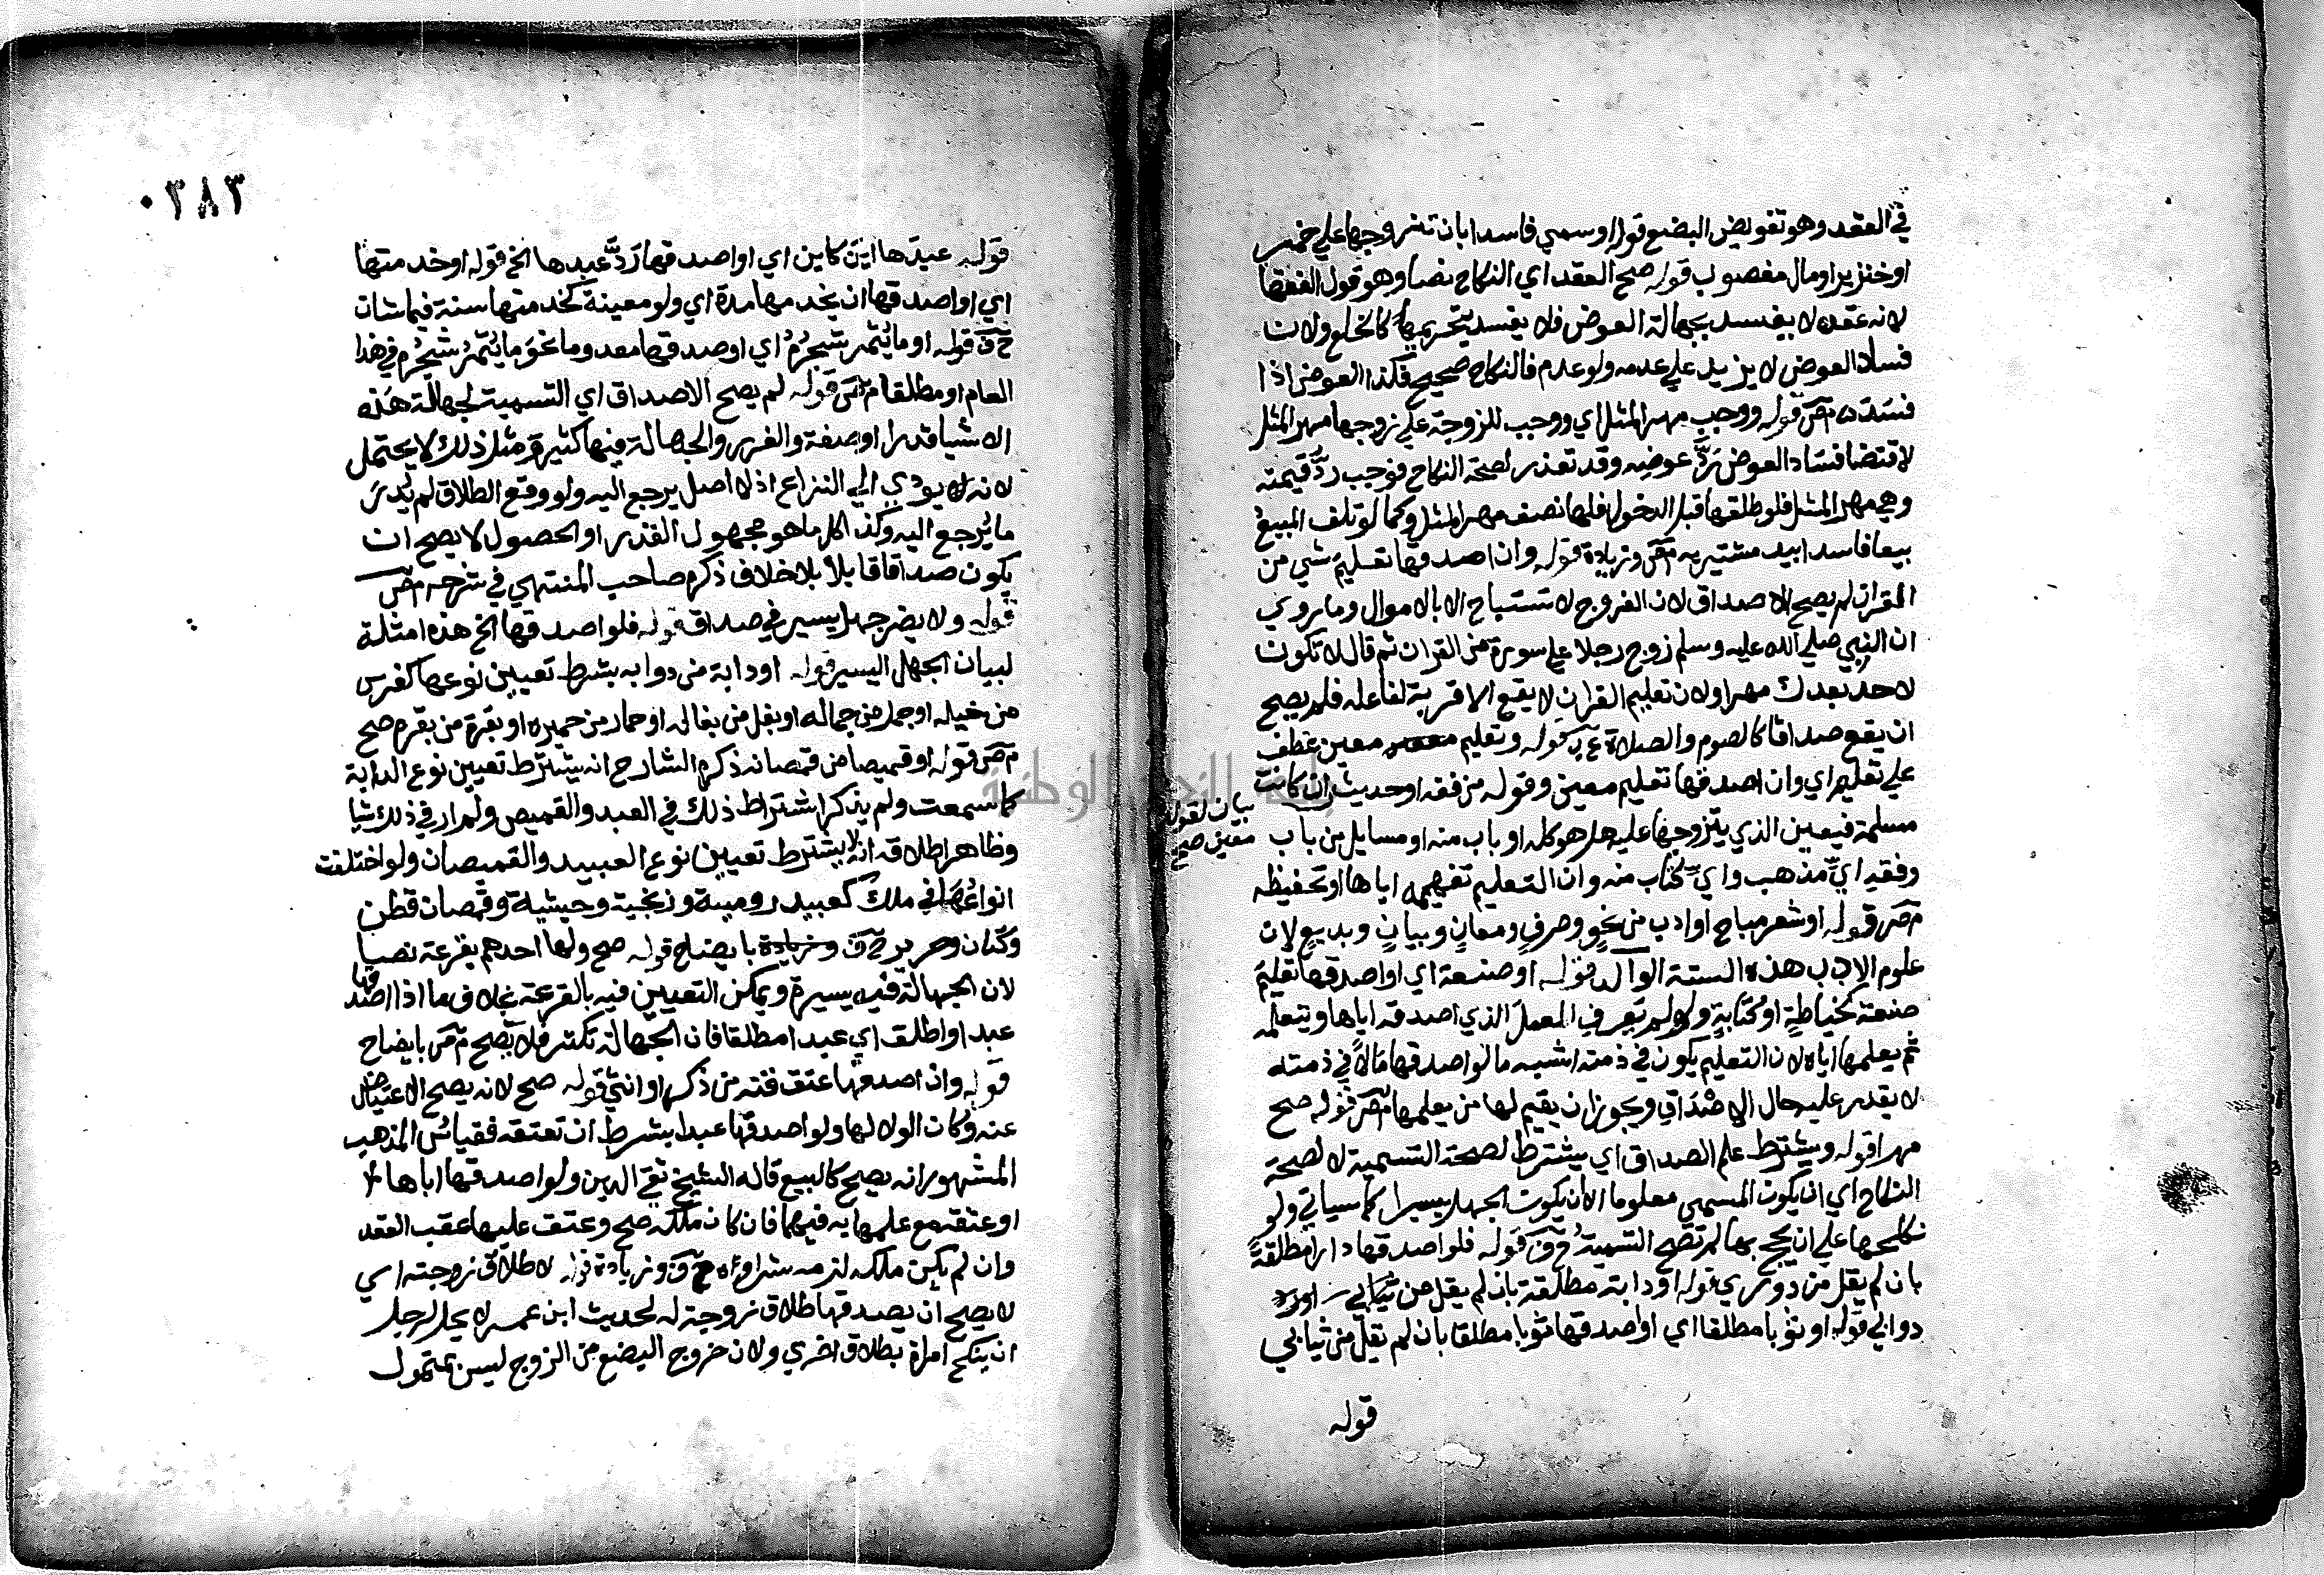 في العقد وهو تفويض البضع قوله او سمي فاسدا بان تزوجها علي خمر
او خنزير او مال مغصوب قوله صح العقد اي النكاح نصا وهو قول الفقها
لانه عقد لا يفسد بجهالة العوض فلا يفسد بتحريمه كالخلع ولان
فساد العوض لا يزيد علي عدمه ولو عدم فالنكاح صحيح فكذا العوض اذا
فسد م ص قوله ووجب مهر المثل اي ووجب للزوجة علي زوجها مهر المثل
لاقتضا فساد العوض رد عوضه وقد تعذر لصحة النكاح فوجب رد قيمته
وهي مهر المثل فلو طلقها قبل الدخول فلها نصف مهر المثل وكما لو تلف المبيع
بيعا فاسدا بيد مشتريه م ص وزيادة قوله وان اصدقها تعليم شي من
القران لم يصح الاصداق لان الفروج لا تستباح الا بالاموال وما روي
ان النبي صلي الله عليه وسلم زوج رجلا علي سورة من القران ثم قال لا تكون
لاحد بعدك مهرا ولان تعليم القران لا يقع الا قربة لفاعله فلم يصح
ان يقع صداقا كالصوم والصلاة قوله وتعليم معين عطف
علي تعليم اي وان اصدقها تعليم معين وقوله من فقه او حديث ان كانت
بيان لقوله
معين صح
مسلمة فيعين الذي يتزوجها عليه هل هو كله او باب منه او مسايل من باب
وفقه اي مذهب واي كتاب منه وان التعليم تفهيمه اياها او تحفيظه
م ص قوله او شعر مباح او ادب من نحو وصرف ومعان وبيان وبديع لان
علوم الادب هذه الستة قوله او صنعة اي او اصدقها تعليم
صنعة كخياطة او كتابة ولو لم يعرف العمل الذي اصدقه اياها ويتعلمه
ثم يعلمها اياه لان التعليم يكون في ذمته اشبه ما لو اصدقها مالا في ذمته
لا يقدر عليه حال الاصداق ويجوز ان يقيم لها من يعلمها م ص قوله صح
مهرا قوله ويشترط علم الصداق اي يشترط لصحة التسمية لا لصحة
النكاح اي ان يكون المسمي معلوما الا ان يكون الجهل يسيرا كما سياتي ولو
نكحها علي ان يحج بها لم تصح التسمية ح ف قوله فلو اصدقها دارا مطلقة
بان لم يقل من دوري قوله او دابة مطلقة بان لم يقل من
دوابي قوله او ثوبا مطلقا اي او اصدقها ثوبا مطلقا بان لم يقل من ثيابي
قوله
٠٣٨٣
قوله عبدها اين كان اي او اصدقها رد عبدها الخ قوله او خدمتها
اي او اصدقها ان يخدمها مدة اي ولو معينة كخدمتها سنة فيما شات
ح ف قوله او ما يثمر شجره اي او صدقها معدوما نحو ما يثمر شجره في هذا
العام او مطلقا م ص قوله لم يصح الاصداق اي التسمية لجهالة هذه
الاشيا قدرا او صفة والغرر والجهالة فيها كثيرة ومثل ذلك لا يحتمل
لانه يودي الي النزاع اذ لا اصل يرجع اليه ولو وقع الطلاق لم يدر
ما يرجع اليه وكذا كل ما هو مجهول القدر او الحصول لا يصح ان
يكون صداقا قابلا بلا خلاف ذكره صاحب المنتهي في شرحه م ص
قوله ولا يضر جهل يسير في صداق قوله فلو اصدقها الخ هذه امثلة
لبيان الجهل اليسير قوله او دابة من دوابه بشرط تعيين نوعها كفرس
من خيله او جمل من جماله او بغل من بغاله او حمار من حميره او بقرة من بقره صح
م ص قوله او قميصا من قمصانه ذكر الشارح انه يشترط تعيين نوع الدابة
كما سمعت ولم يذكر اشتراط ذلك في العبد والقميص ولم ار في ذلك شيا
وظاهر اطلاقه انه لا يشترط تعيين نوع العبيد والقمصان ولو اختلفت
انواعها في ملكه كعبيد رومية وزنجية وحبشية وقمصان قطن
وكتان وحرير ح ف وزيادة بايضاح قوله صح ولها احدهم بقرعة نصا
لان الجهالة فيه يسيرة ويمكن التعيين فيه بالقرعة بخلاف ما اذا اصدقها
عبدا واطلق اي عبدا مطلقا فان الجهالة تكثر فلا يصح م ص بايضاح
قوله وان اصدقها عتق قنه من ذكر او انثي قوله صح لانه يصح الاعتياض
عنه وكان الولا لها ولو اصدقها عبدا بشرط ان تعتقه فقياس المذهب
المشهور انه يصح كالبيع قاله الشيخ تقي الدين ولو اصدقها اباها
او عتقه مع علمها به فيهما فان كان ملكه صح وعتق عليها عقب العقد
وان لم يكن ملكه لزمه شراوه ح ف وزيادة قوله لا طلاق زوجته اي
لا يصح ان يصدقها طلاق زوجة له لحديث ابن عمر لا يحل لرجل
ان ينكح امراة بطلاق اخري ولان خروج البضع من الزوج ليس بمتمول